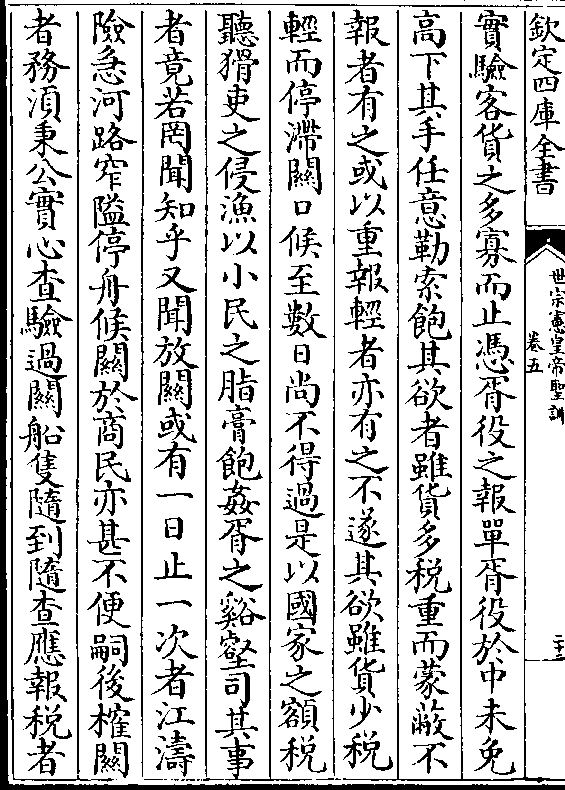 欽定四庫全書
世宗憲皇帝聖訓
卷五
二十二
實驗客貨之多寡而止憑胥役之報單胥役於中未免
高下其手任意勒索飽其欲者雖貨多税重而蒙蔽不
報者有之或以重報輕者亦有之不遂其欲雖貨少税
輕而停滯關口候至數日尚不得過是以國家之額税
聽猾吏之侵漁以小民之脂膏飽姦胥之谿壑司其事
者竟若罔聞知乎又聞放關或有一日止一次者江濤
險急河路窄隘停舟候關於商民亦甚不便嗣後榷關
者務湏秉公實心查驗過關船隻隨到隨查應報税者